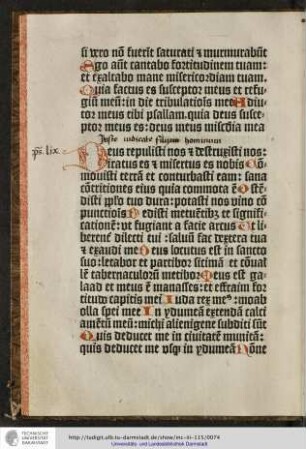 si vero nō fuerīt saturati ⁊ murmurabūt
Ego aūt cantabo fortitudinem tuam:
et exaltabo mane misericordiam tuam.
Quia factus es susceptor meus et refu⸗
gīu meū: in die tribulatiōis mee Adiu⸗
tor meus tibi psallam. quia deus susce⸗
ptor meus es: deus meus misc̄dia mea
Juste iudicate filij hominum
ps̄ lix.
Deus repulisti nos ⁊ destruxisti nos:
iratus es ⁊ misertus es nobis Cō⸗
mouisti terrā et conturbasti eam: sana
cōtritiones eius quia commota ē Oste⸗
disti pplo tuo dura: potasti nos vino cō
punctiōis Dedisti metuētibꝫ te signifi⸗
cationē: vt fugiant a facie arcus Ut li
berent̄ dilecti tui: saluū fac dextera tua
⁊ exaudi me Deus locutus est in sancto
suo: letabor et partibor sicimā et cōual
lē tabernaculorū metibor Meus est ga⸗
laad et meus ē manasses: et effraim for
titudo capitis mei Iuda rex meꝰ: moab
olla spei mee In ydumeā extendā calci
amētū meū: michi alienigene subditi sūt
Quis deducet me in ciuitatē munitā:
quis deducet me vsqꝫ in ydumeā Nōne
TECHNISCHE
UNIVERSITÄT
DARMSTADT
http://tudigit.ulb.tu-darmstadt.de/show/inc-iii-115/0074
Universitäts- und Landesbibliothek Darmstadt